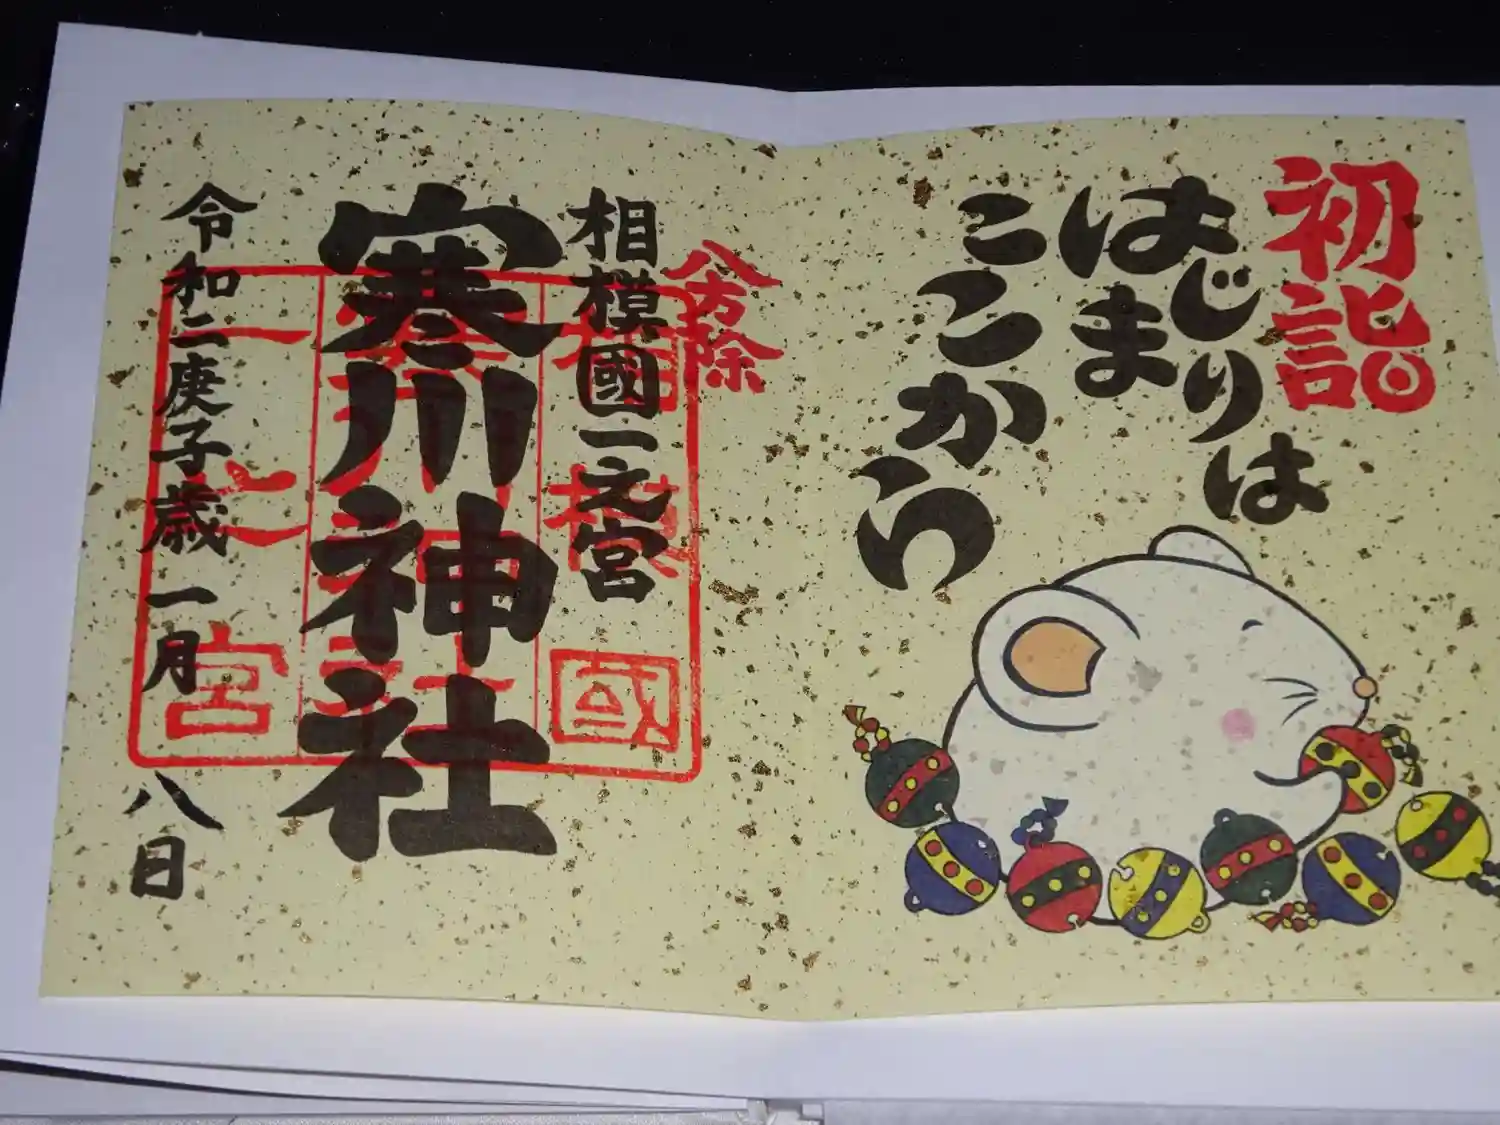 初詣
はじりは
はま
ここかい
八方除
相模國一之宮
寒川神社
令和二庚子歳一月八日
相模國
寒川神社
一之宮